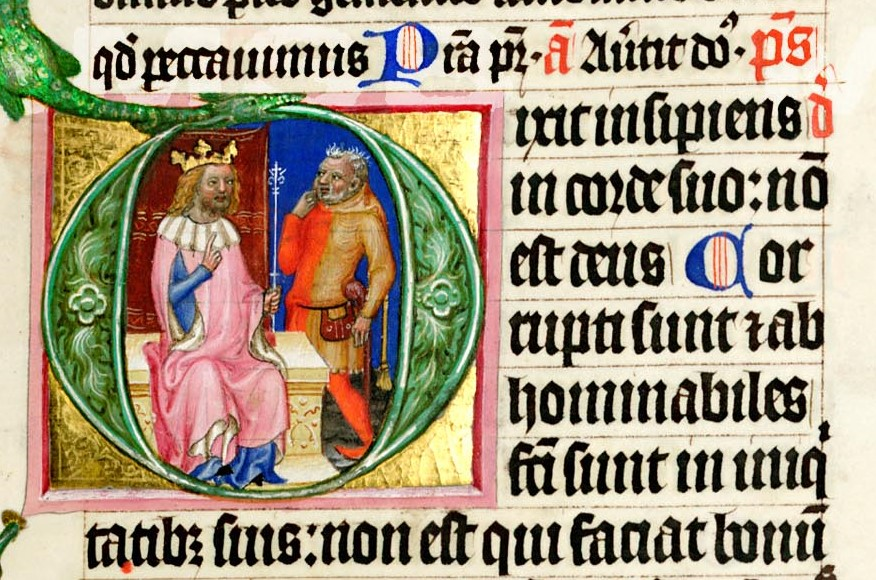 qd̄ peccauimus Pr̄a pr̄. ā Aūtit dō. p̄s
Dixit insipiens d̄
in corde suo: nō
est deus Cor
rupti sunt ⁊ ab
hominabiles
fc̄i sunt in iniq̇
tatibꝫ suis: non est qui faciat bonū